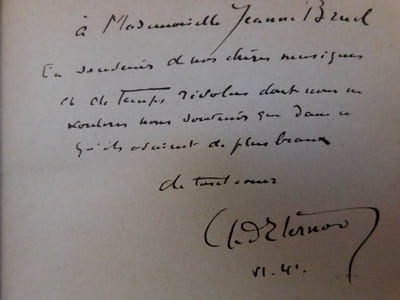 à Mademoiselle Jeanne Bruel
En souvenir de nos chères musiques
et de temps révolus dont nous ne
voulons nous souvenir que dans ce
qu'ils avaient de plus beau
de tout coeur
VI. 41.